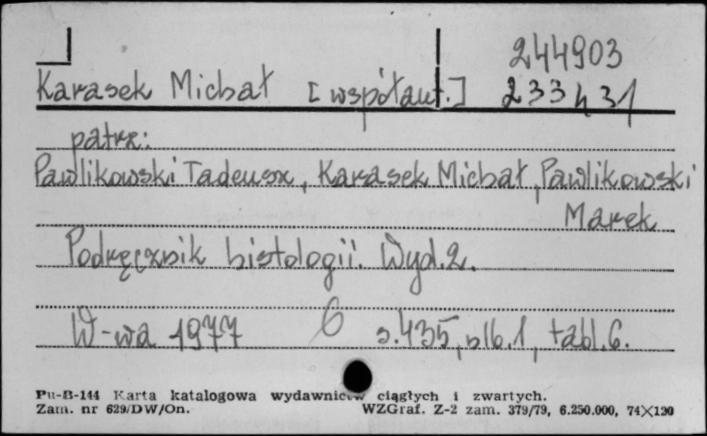 244903
Karasek Michał [współaut.] 233431
patrz:
Pawlikowski Tadeusz, Karasek Michał, Pawlikowski
Marek
Podręcznik histologii. Wyd. 2.
W-wa 1977 6 s. 435, nlb. 1, tabl. 6.
Pu-B-144 Karta katalogowa wydawnictw ciągłych i zwartych.
Zam. nr 629/DW/On. WZGraf. Z-2 zam. 379/79, 6.250.000, 74×120